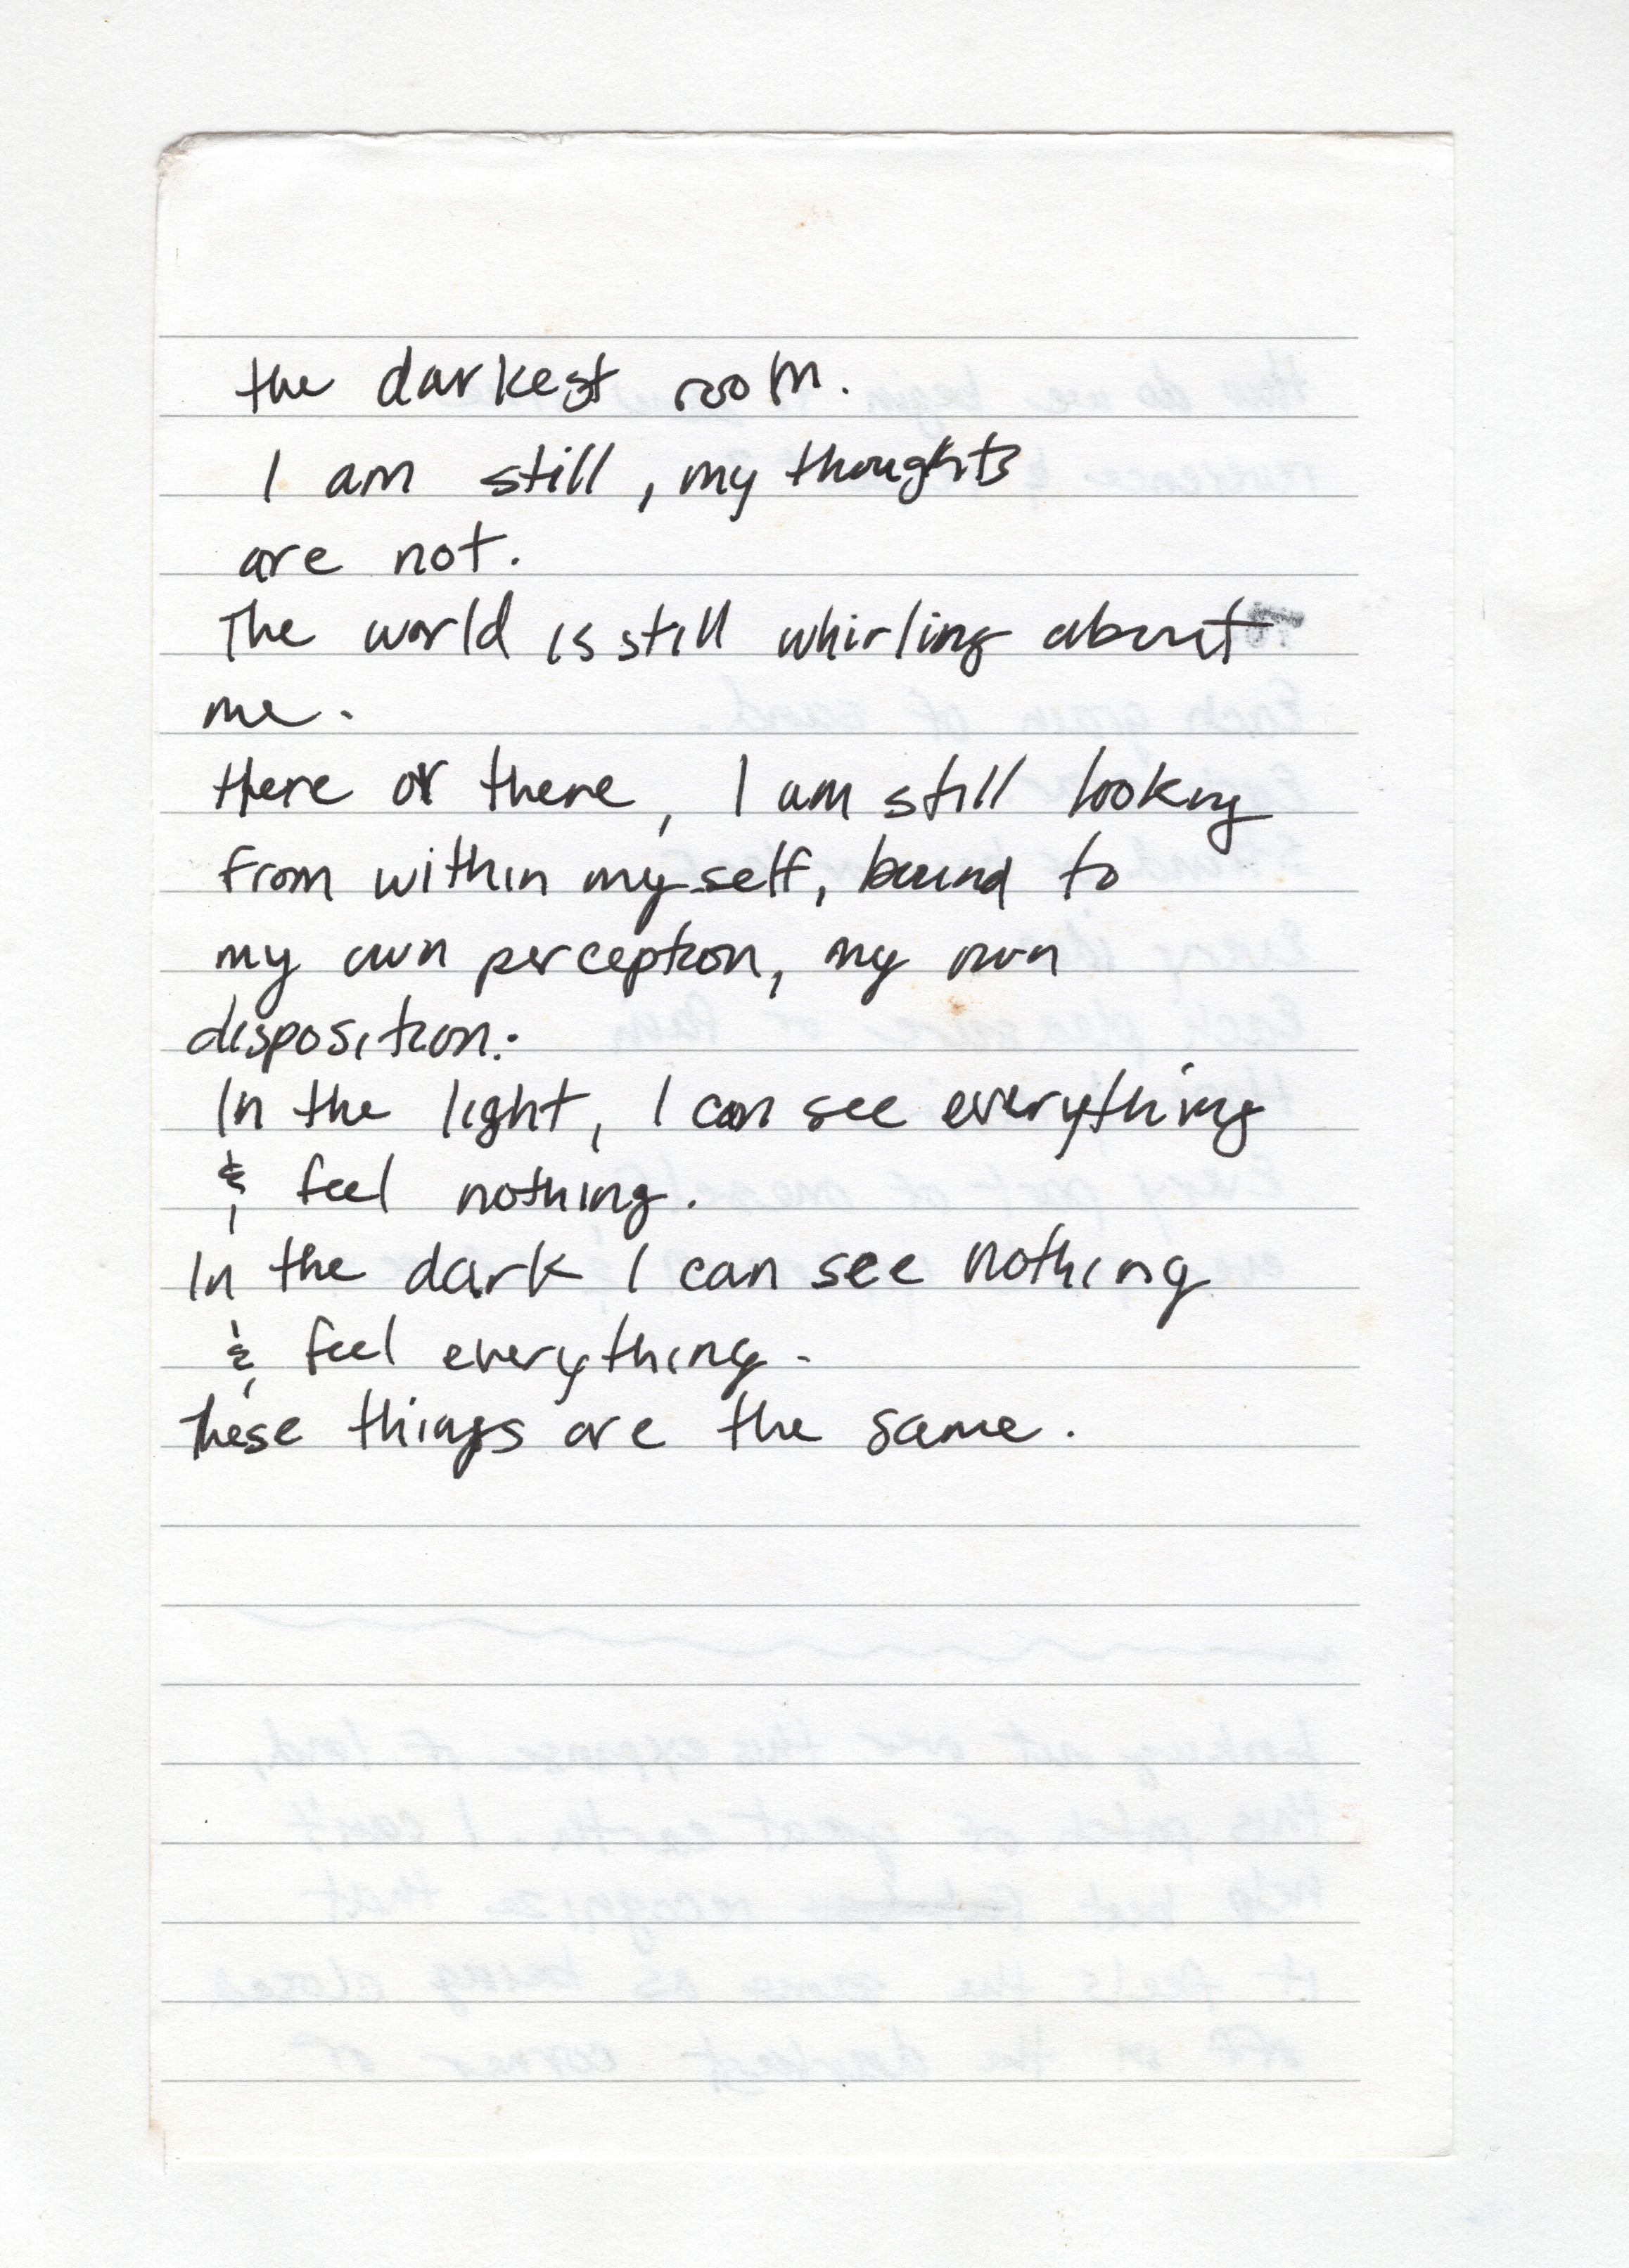 the darkest room.
I am still, my thoughts
are not.
The world is still whirling about
me.
Here or there, I am still looking
from within myself, bound to
my own perception, my own
disposition.
In the light, I can see everything
& feel nothing.
In the dark I can see nothing
& feel everything.
These things are the same.